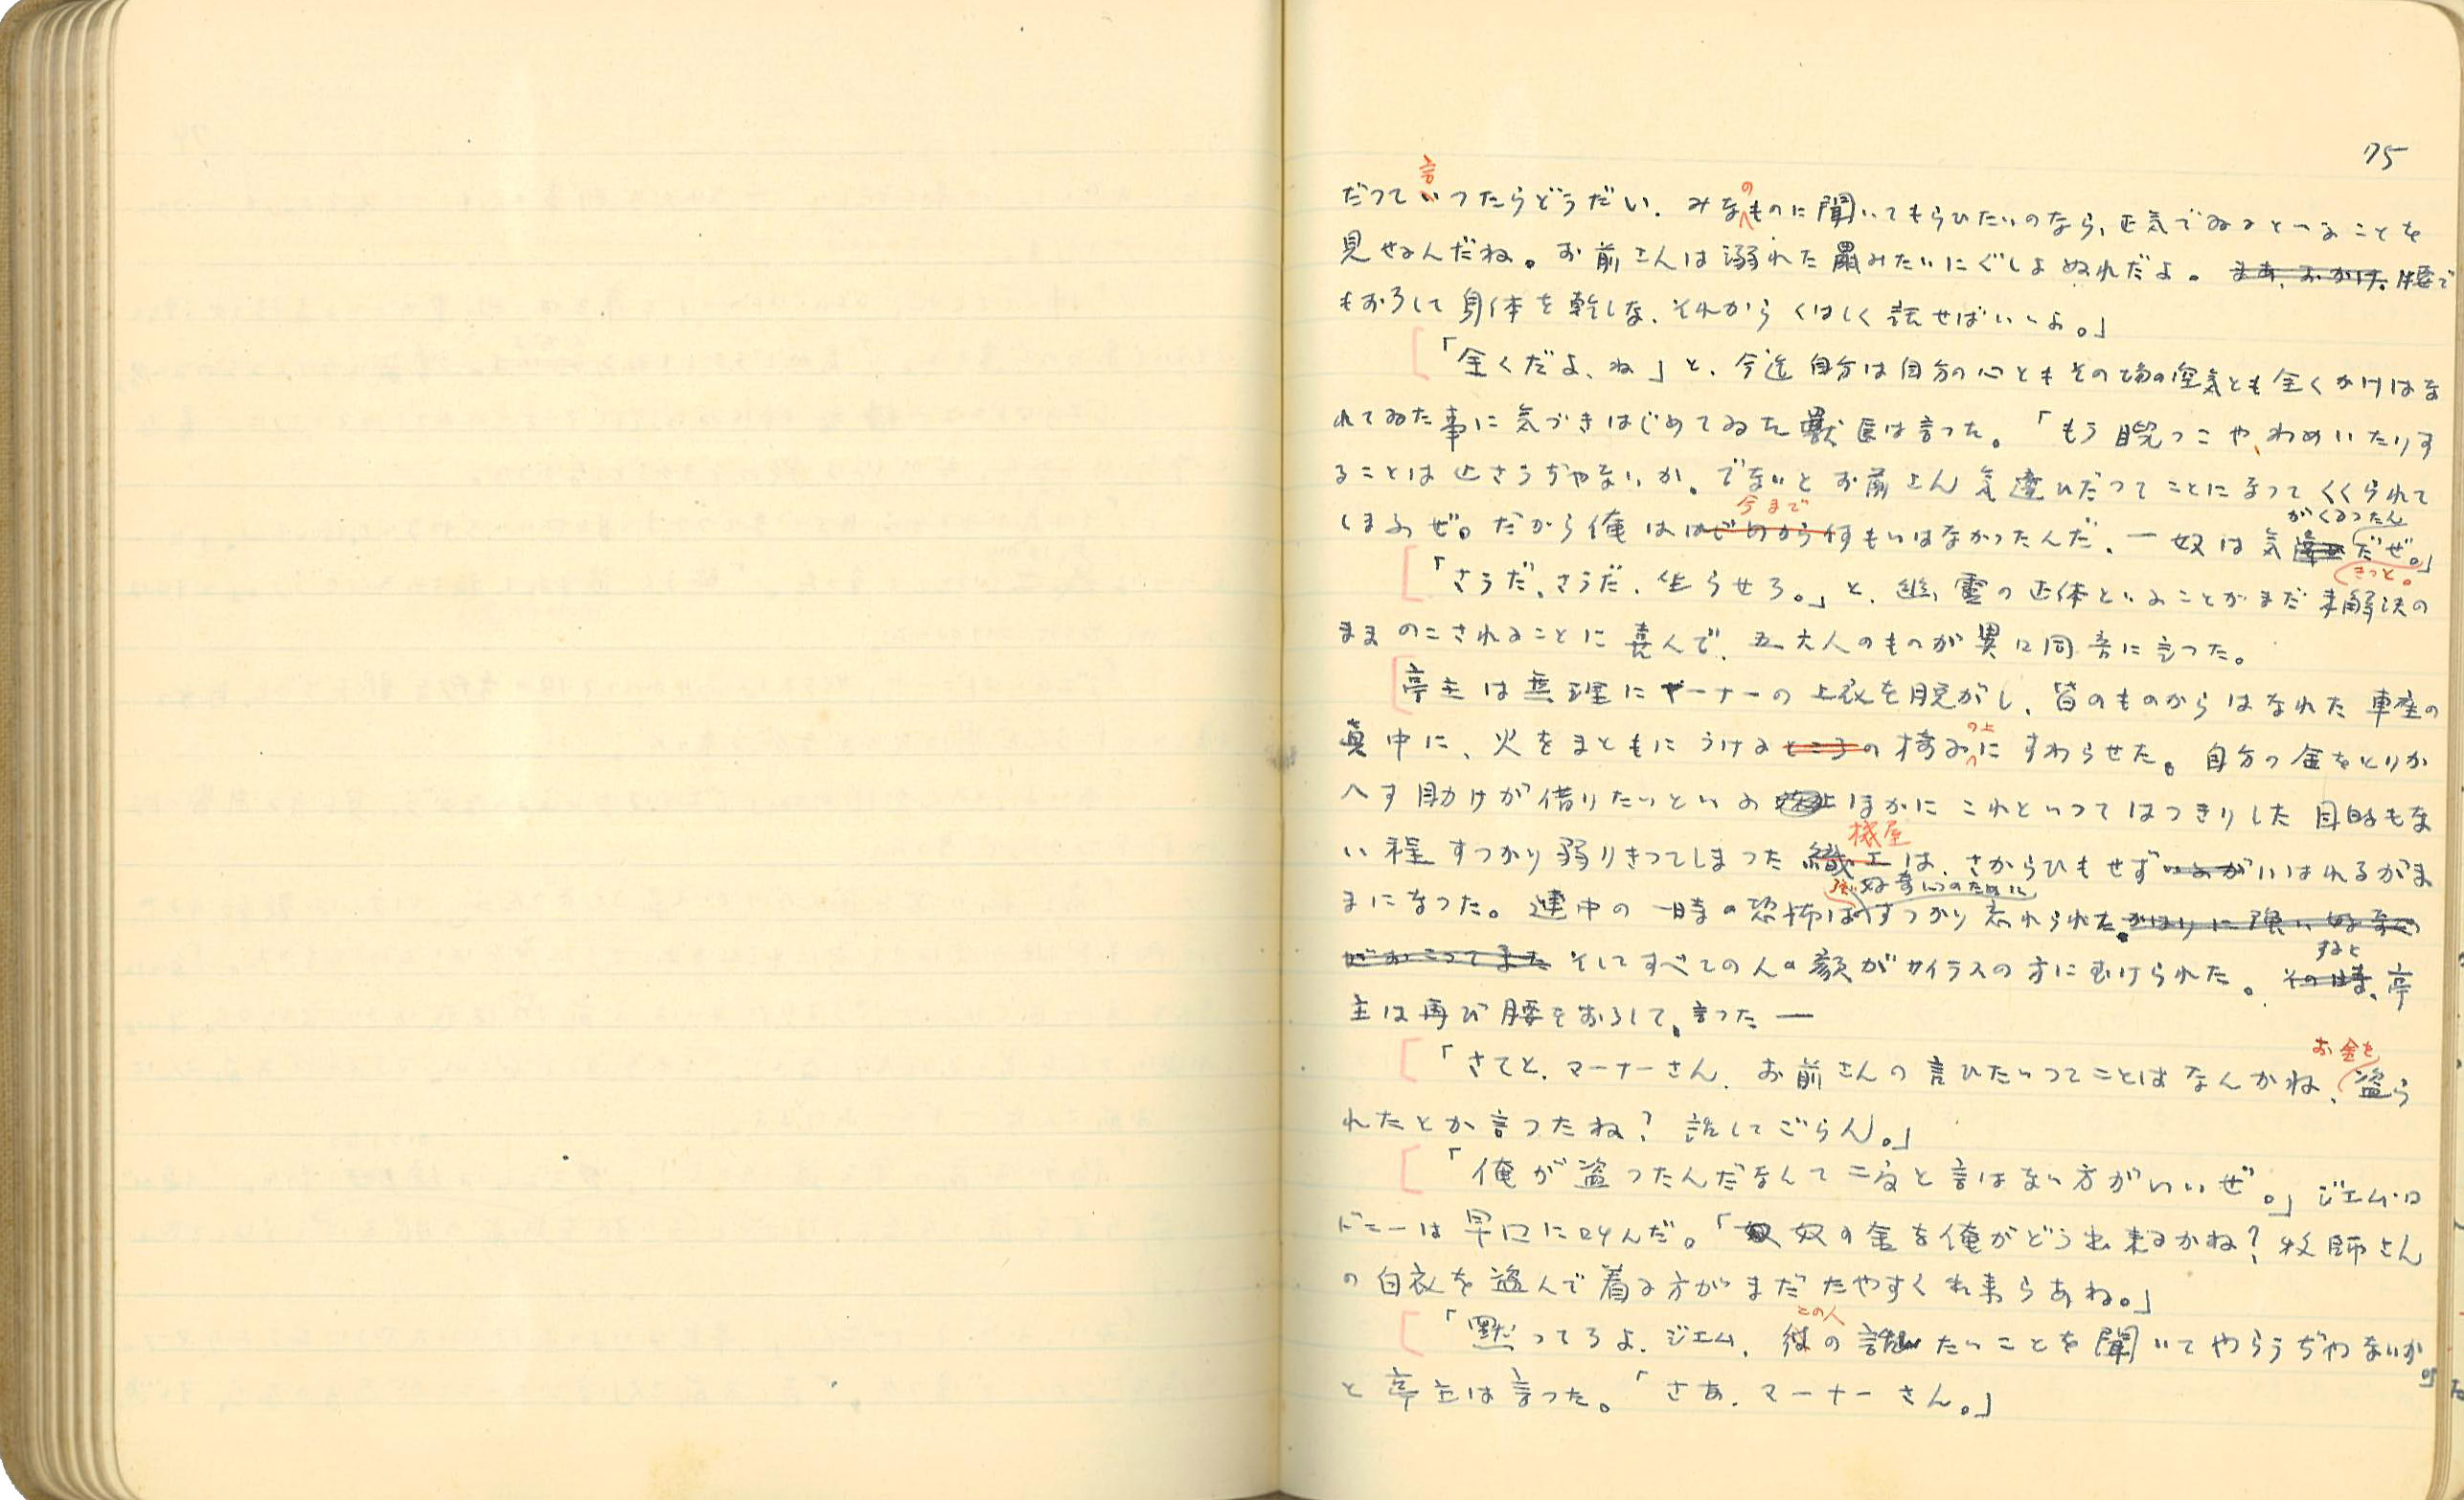 75
だつて言つたらどうだい、みなのものに聞いてもらひたいのなら、正気でゐるといふことを
見せるんだね。お前さんは溺れた鼠みたいにぐしよぬれだよ。まあ、おかけ。腰で
もおろして身体を乾しな、それからくはしく話せばいゝよ。」
「全くだよ、ね」と、今迄自分は自分の心ともその場の空気とも全くかけはな
れてゐた事に気づきはじめてゐた獣医は言つた。「もう睨つこや、わめいたりす
ることは止さうぢやないか。でないとお前さん気違ひだつてことになつてくくられて
今まで
がくるつたん
しまふぜ。だから俺ははじめから何もいはなかつたんだ、一奴は気違ひだぜ。」
きつと。
「さうだ、さうだ、坐らせろ。」と、幽霊の正体といふことがまだ未解決の
まゝのこされることに喜んで、五六人のものが異口同音に言つた。
亭主は無理にマーナーの上衣を脱がし、皆のものからはなれた車座の
の上
真中に、火をまともにうけるところの椅子にすわらせた。自分の金をとりか
へす助けが借りたいといふほかにこれといつてはつきりした目的もな
機屋
い程すつかり弱りきつてしまつた織工は、さからひもせずいふがいはれるがま
強い好奇心のために
まになつた。連中の一時の恐怖はすつかり忘れられた。かはりに強い好奇心
がおこつてきた そしてすべての人の顔がサイラスの方にむけられた。その時、亭
すると
主は再び腰をおろして、言つた—
お金を
「さてと、マーナーさん、お前さんの言ひたいつてことはなんかね、盗ら
れたとか言つたね? 話してごらん。」
「俺が盗つたんだなんて二度と言はない方がいいぜ。」ジエム・ロ
ドニーは早口に叫んだ。「奴の金を俺がどう出来るかね? 牧師さん
の白衣を盗んで着る方がまだたやすく出来らあね。」
この人
「黙つてろよ、ジエム、彼の話したいことを聞いてやらうぢやないか。」
と亭主は言つた。「さあ、マーナーさん。」